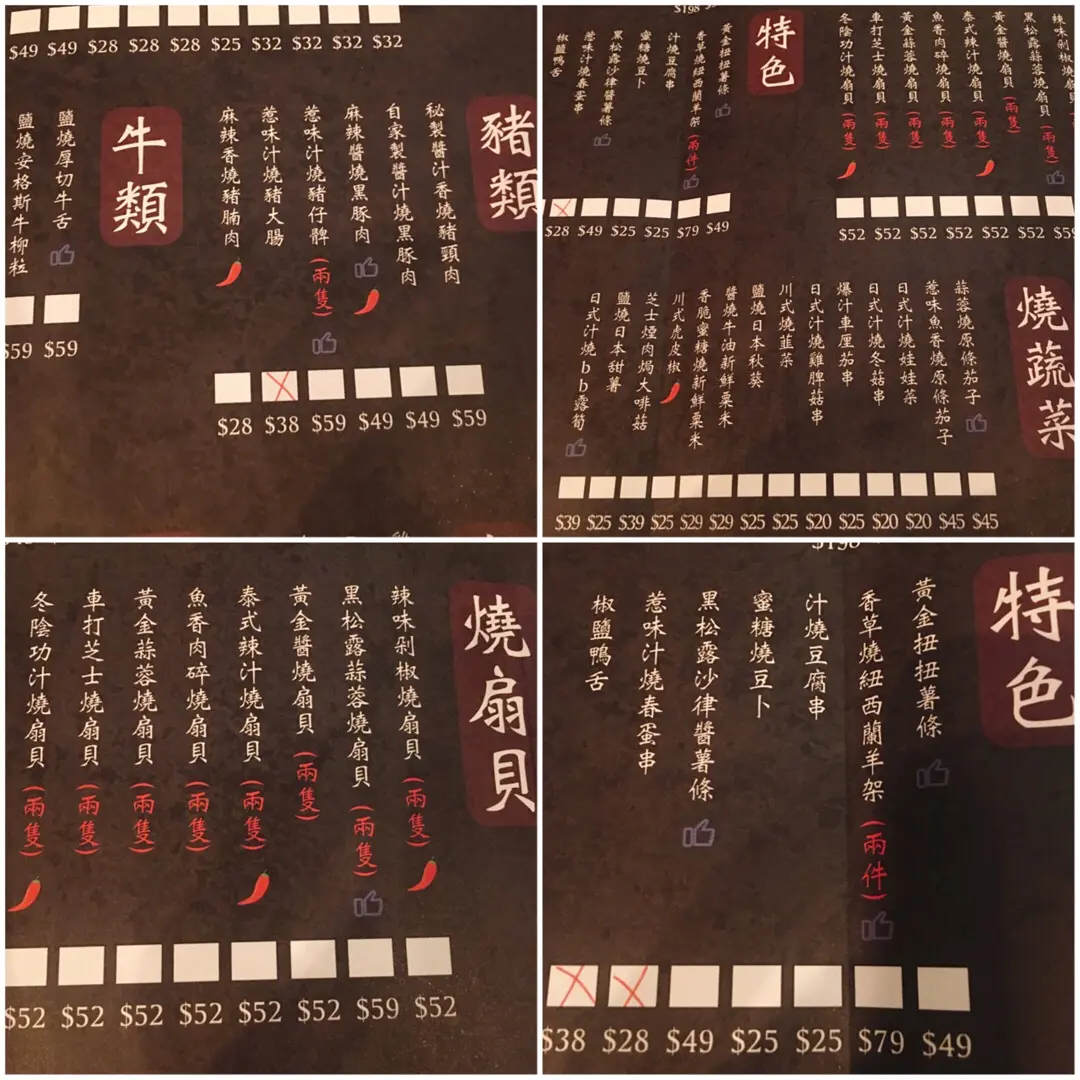 $49 $49 $28 $28 $28 $25 $32 $32 $32 $32
豬類
秘製醬汁香燒豬頸肉
自家製醬汁燒黑豚肉
麻辣醬燒黑豚肉
惹味汁燒豬仔髀(兩隻)
惹味汁燒豬大腸
麻辣香燒豬腩肉
$28 $38 $59 $49 $49 $59
牛類
鹽燒厚切牛舌
鹽燒安格斯牛柳粒
$59 $59
$198
辣味剁椒燒
黑松露蒜蓉燒扇貝(兩隻)
黃金醬燒扇貝(兩隻)
泰式辣汁燒扇貝(兩隻)
魚香肉碎燒扇貝(兩隻)
黃金蒜蓉燒扇貝(兩隻)
車打芝士燒扇貝(兩隻)
冬陰功汁燒扇貝(兩隻)
$52 $52 $52 $52 $52 $52 $59
特色
黃金扭扭薯條
香草燒紐西蘭羊架(兩件)
汁燒豆腐串
蜜糖燒豆卜
黑松露沙律醬薯條
惹味汁燒春蛋串
椒鹽鴨舌
$28 $49 $25 $25 $79 $49
燒蔬菜
蒜蓉燒原條茄子
惹味魚香燒原條茄子
日式汁燒娃娃菜
日式汁燒冬菇串
爆汁車厘茄串
日式汁燒雞脾菇串
川式燒韮菜
鹽燒日本秋葵
醬燒牛油新鮮粟米
香脆蜜糖燒新鮮粟米
川式虎皮椒
芝士煙肉焗大啡菇
鹽燒日本甜薯
日式汁燒bb露筍
$39 $25 $39 $25 $29 $29 $25 $25 $20 $25 $20 $20 $45 $45
燒扇貝
辣味剁椒燒扇貝(兩隻)
黑松露蒜蓉燒扇貝(兩隻)
黃金醬燒扇貝(兩隻)
泰式辣汁燒扇貝(兩隻)
魚香肉碎燒扇貝(兩隻)
黃金蒜蓉燒扇貝(兩隻)
車打芝士燒扇貝(兩隻)
冬陰功汁燒扇貝(兩隻)
$52 $52 $52 $52 $52 $52 $59 $52
$198
特色
黃金扭扭薯條
香草燒紐西蘭羊架(兩件)
汁燒豆腐串
蜜糖燒豆卜
黑松露沙律醬薯條
惹味汁燒春蛋串
椒鹽鴨舌
$38 $28 $49 $25 $25 $79 $49